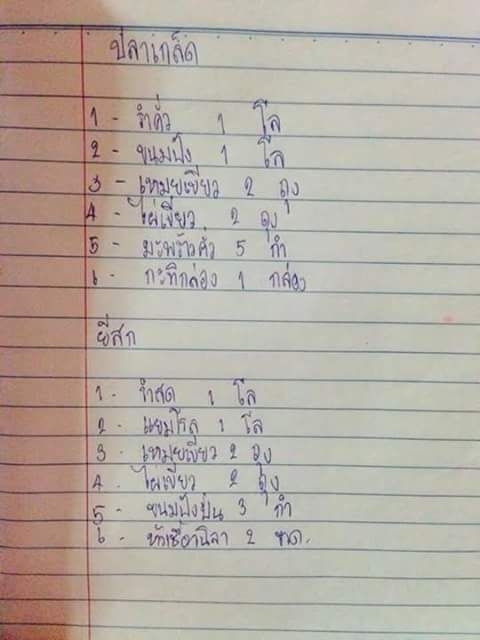 ปลาเกล็ด
1 - รำคั่ว 1 โล
2 - ขนมปัง 1 โล
3 - เหมยเขียว 2 ถุง
4 - ไผ่เขียว 2 ถุง
5 - มะพร้าวคั่ว 5 กำ
6 - กะทิกล่อง 1 กล่อง
ยี่สก
1 - รำสด 1 โล
2 - แยมโรล 1 โล
3 - เหมยเขียว 2 ถุง
4 - ไผ่เขียว 2 ถุง
5 - ขนมปังป่น 3 กำ
6 - หัวเชื้อวานิลา 2 หด.